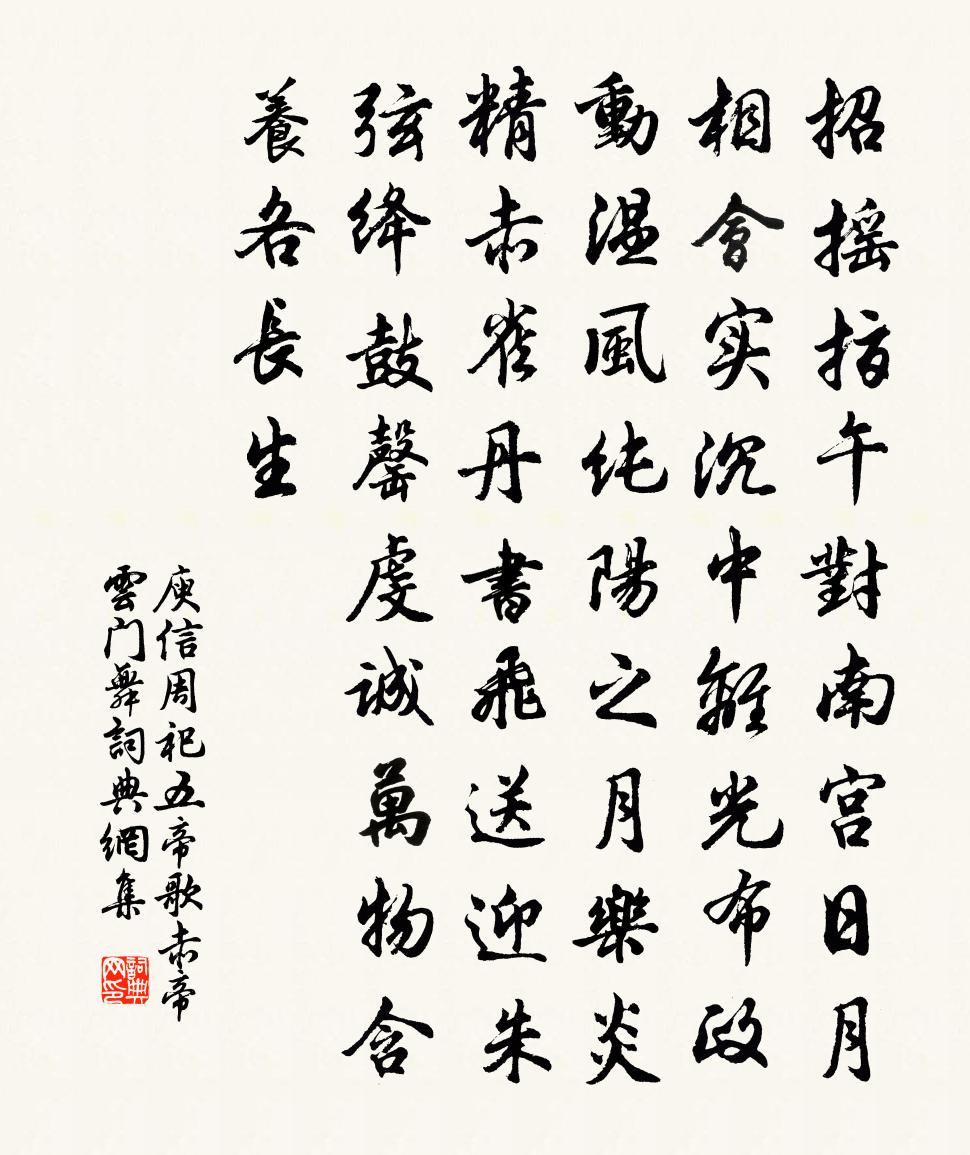 招摇指午對南宫日月
相會实沉中離光布政
動温風纯陽之月樂炎
精赤雀丹書飛送迎朱
弦绛鼓罄虔誠萬物含
養各長生
庾信周祀五帝歌赤帝
雲门舞詞典網集
詞典网印